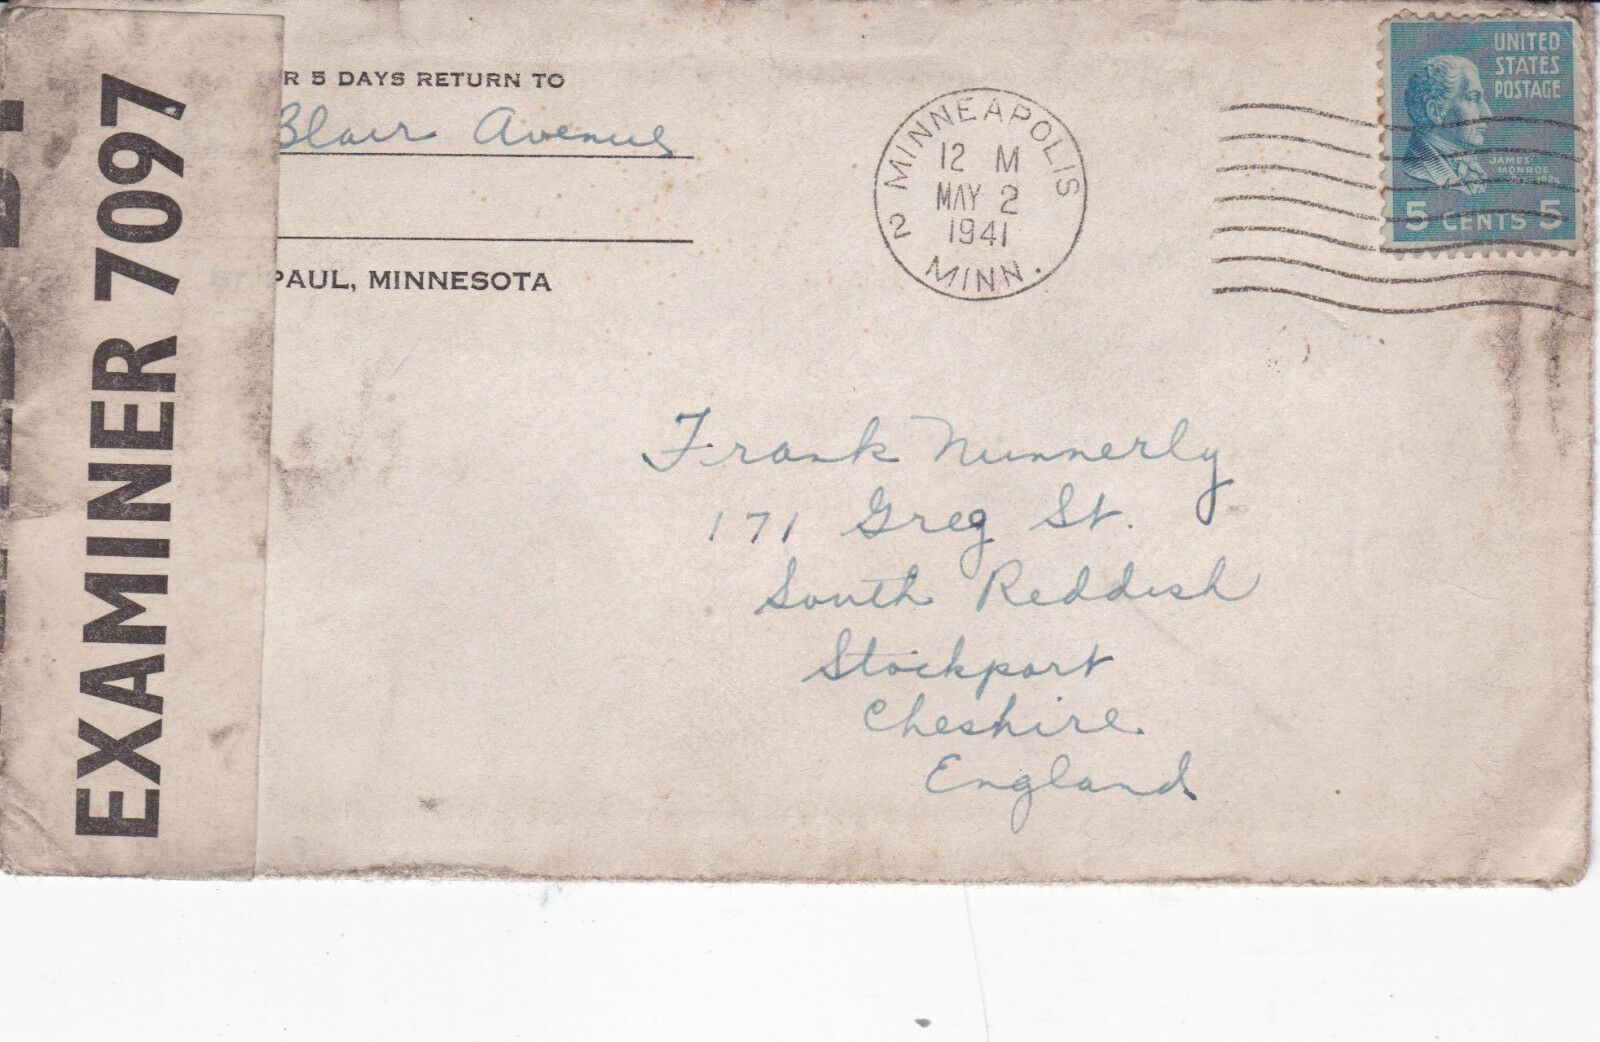 EXAMINER 7097
R 5 DAYS RETURN TO
Blair Avenue
PAUL, MINNESOTA
MINNEAPOLIS
12 M
MAY 2
1941
2
MINN.
UNITED
STATES
POSTAGE
JAMES
MONROE
5 CENTS 5
Frank Nunnerly
171 Greg St.
South Reddish
Stockport
Cheshire
England